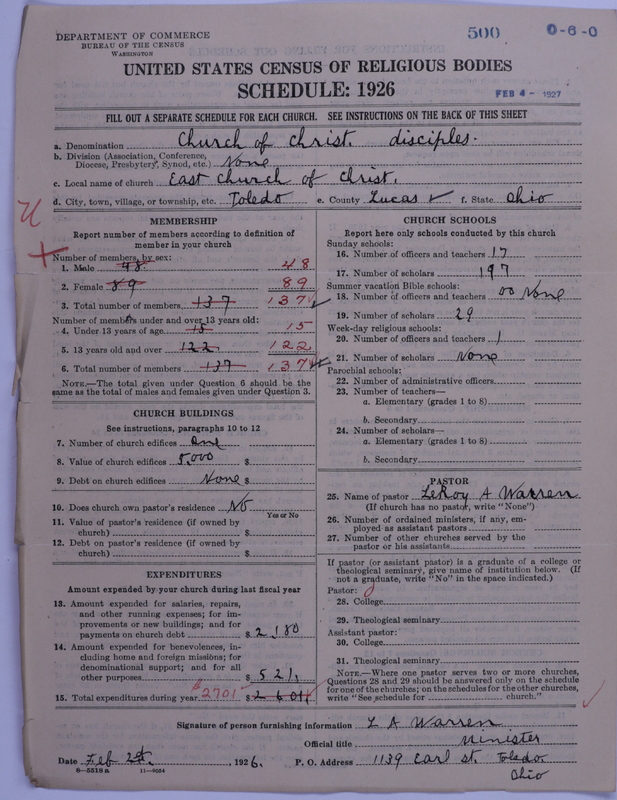 DEPARTMENT OF COMMERCE
BUREAU OF THE CENSUS
WASHINGTON
500
0-6-0
UNITED STATES CENSUS OF RELIGIOUS BODIES
SCHEDULE: 1926
FEB 4 - 1927
FILL OUT A SEPARATE SCHEDULE FOR EACH CHURCH. SEE INSTRUCTIONS ON THE BACK OF THIS SHEET
a. Denomination Church of Christ. disciples.
b. Division (Association, Conference,
Diocese, Presbytery, Synod, etc.) None
c. Local name of church East Church of Christ.
d. City, town, village, or township, etc. Toledo e. County Lucas f. State Ohio
MEMBERSHIP
Report number of members according to definition of
member in your church
Number of members, by sex:
1. Male 48 48
2. Female 89 89
3. Total number of members 137 137
Number of members under and over 13 years old:
4. Under 13 years of age 15 15
5. 13 years old and over 122 122
6. Total number of members 137 137
NOTE.—The total given under Question 6 should be the
same as the total of males and females given under Question 3.
CHURCH BUILDINGS
See instructions, paragraphs 10 to 12
7. Number of church edifices One
8. Value of church edifices 5,000 $
9. Debt on church edifices None $
10. Does church own pastor's residence No
Yes or No
11. Value of pastor's residence (if owned by
church) $
12. Debt on pastor's residence (if owned by
church) $
EXPENDITURES
Amount expended by your church during last fiscal year
13. Amount expended for salaries, repairs,
and other running expenses; for im-
provements or new buildings; and for
payments on church debt $ 2,180
14. Amount expended for benevolences, in-
cluding home and foreign missions; for
denominational support; and for all
other purposes $ 521
15. Total expenditures during year $2701 $ 2601
CHURCH SCHOOLS
Report here only schools conducted by this church
Sunday schools:
16. Number of officers and teachers 17
17. Number of scholars 197
Summer vacation Bible schools:
18. Number of officers and teachers None
19. Number of scholars 29
Week-day religious schools:
20. Number of officers and teachers 1
21. Number of scholars None
Parochial schools:
22. Number of administrative officers
23. Number of teachers—
a. Elementary (grades 1 to 8)
b. Secondary
24. Number of scholars—
a. Elementary (grades 1 to 8)
b. Secondary
PASTOR
25. Name of pastor LeRoy A Warren
(If church has no pastor, write "None")
26. Number of ordained ministers, if any, em-
ployed as assistant pastors
27. Number of other churches served by the
pastor or his assistants
If pastor (or assistant pastor) is a graduate of a college or
theological seminary, give name of institution below. (If
not a graduate, write "No" in the space indicated.)
Pastor:
28. College
29. Theological seminary
Assistant pastor:
30. College
31. Theological seminary
NOTE.—Where one pastor serves two or more churches,
Questions 28 and 29 should be answered only on the schedule
for one of the churches; on the schedules for the other churches,
write "See schedule for church."
Signature of person furnishing information L A Warren
Official title Minister
Date Feb , 1926. P. O. Address 1139 Earl St. Toledo
Ohio
8—5518a 11—9084